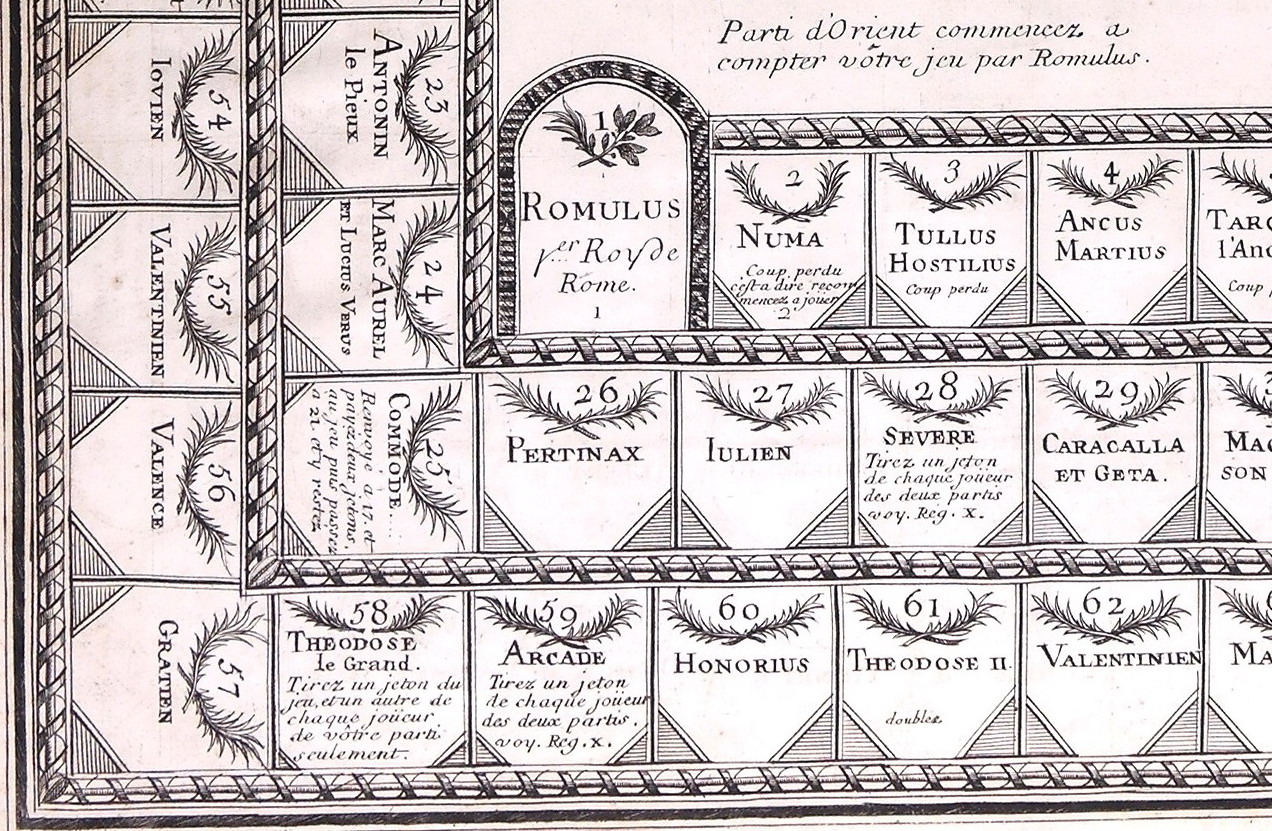 Parti d'Orient commencez a
compter vôtre jeu par Romulus.
54
IOVIEN
23
ANTONIN
le Pieux
1
ROMULUS
1.er Roy de
Rome.
1
2
NUMA
Coup perdu
c'est a dire recom
mencez a joüer
2
3
TULLUS
HOSTILIUS
Coup perdu
4
ANCUS
MARTIUS
TARQ
l'Anc
Coup p
55
VALENTINIEN
24
MARC AUREL
ET LUCIUS VERUS
56
VALENCE
25
COMMODE....
Renvoyé à 17. et
payez deux jetons,
au jeu puis passez
a 21. et y restez
26
PERTINAX
27
IULIEN
28
SEVERE
Tirez un jeton
de chaque joüeur
des deux partis
voy. Reg. X.
29
CARACALLA
ET GETA.
MAC
SON
57
GRATIEN
58
THEODOSE
le Grand.
Tirez un jeton du
jeu, et un autre de
chaque joüeur
de vôtre parti
seulement.
59
ARCADE
Tirez un jeton
de chaque joüeur
des deux partis.
voy. Reg. x.
60
HONORIUS
61
THEODOSE II.
doublez
62
VALENTINIEN
MA